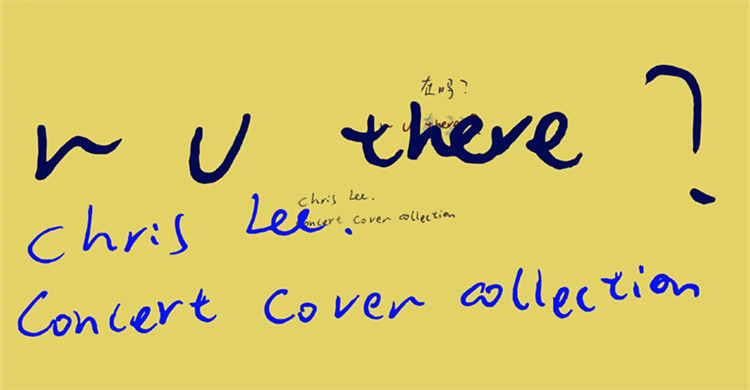 在吗？
r u there
r u there ?
Chris Lee.
Concert Cover collection
Chris Lee.
Concert Cover collection